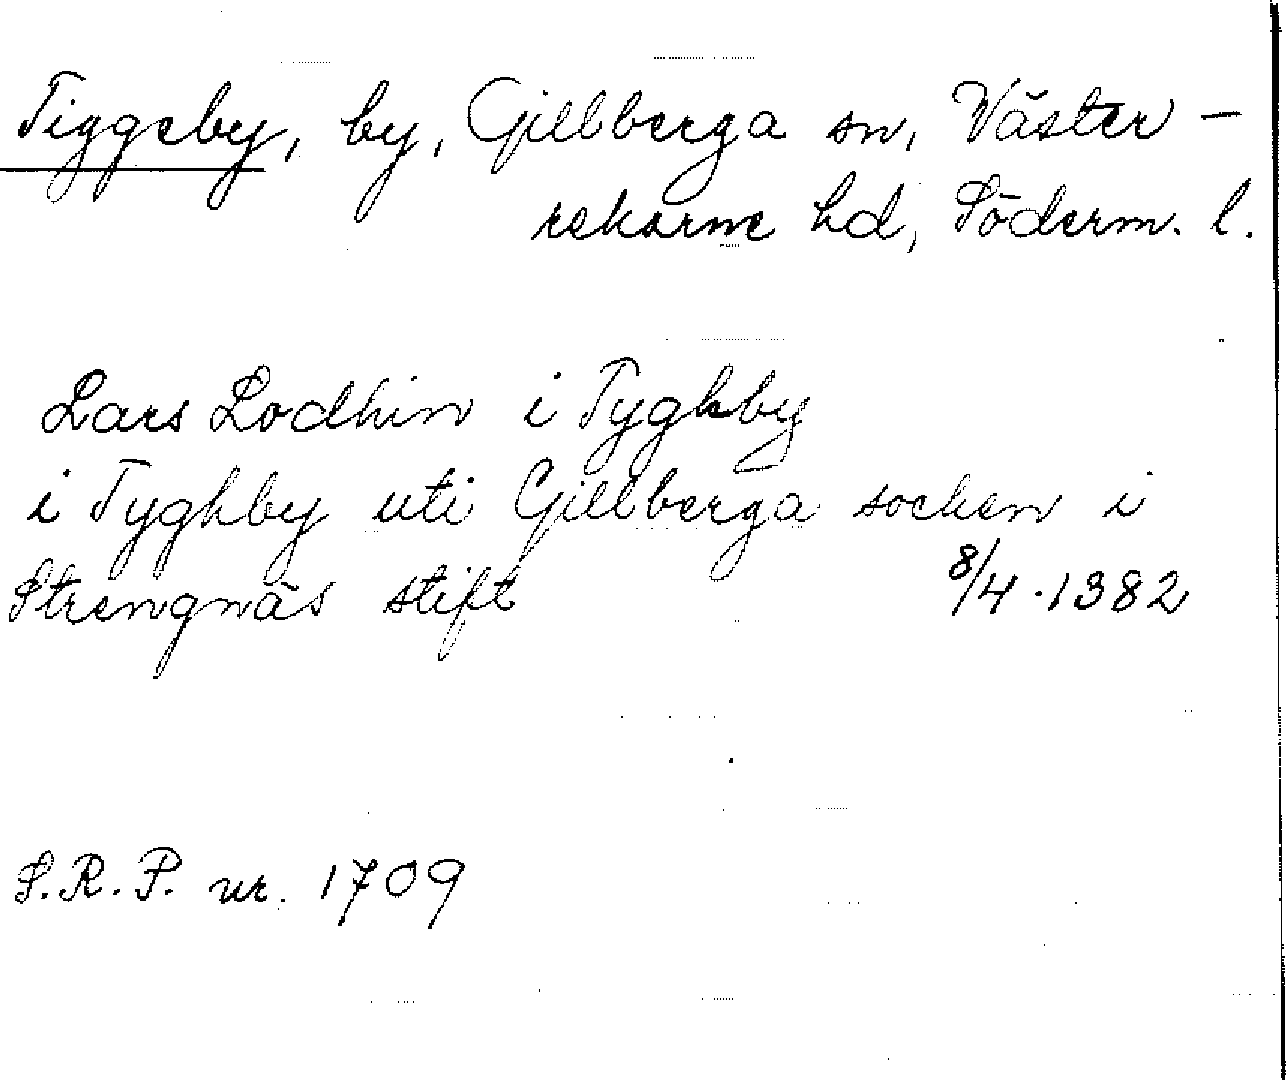 Tiggeby, by, Gillberga sn, Väster-
rekarne hd, Söderm. l.
Lars Lodhin i Tyghby
i Tyghby uti Gillberga socken i
Strengnäs stift 8/4.1382
S.R.P. nr. 1709